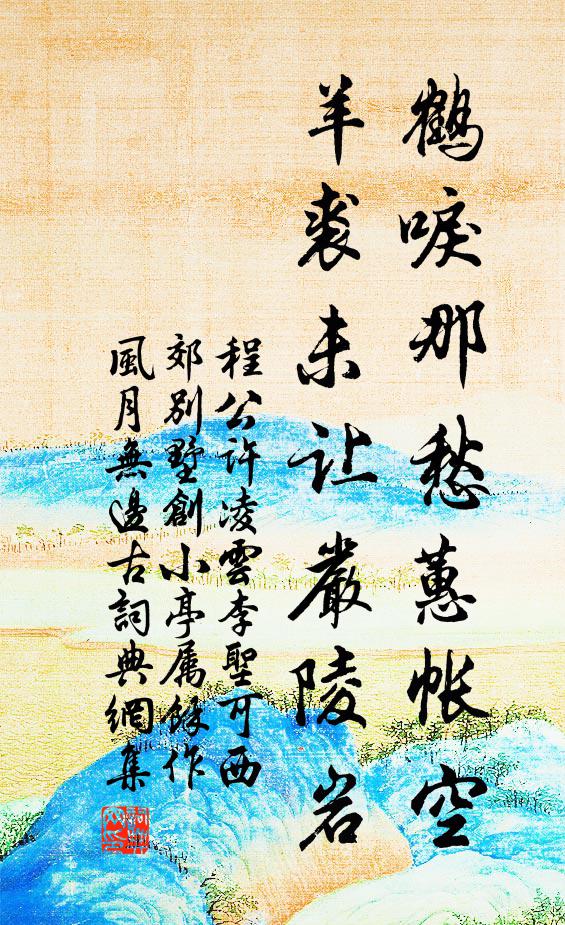 鶴唳那愁蕙帐空
羊裘未让嚴陵岩
程公许凌雲李聖可西
郊別墅創小亭属餘作
風月無邊古詞典網集